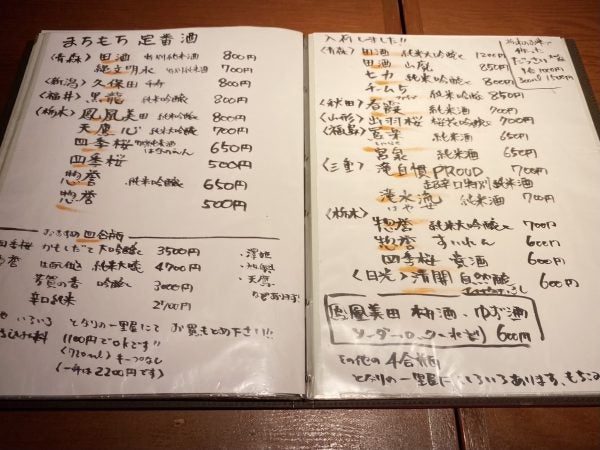 まちもち 定番酒
〈青森〉 田酒 特別純米酒 800円
縄文明水 特別純米酒 700円
〈新潟〉 久保田 千寿 800円
〈福井〉 黒龍 純米吟醸 800円
〈栃木〉 鳳凰美田 純米吟醸 800円
天鷹 心 純米吟醸 700円
四季桜 特別純米酒 はなのえん 650円
四季桜 500円
惣誉 純米吟醸 650円
惣誉 500円
おすすめ 四合瓶
四季桜 大吟醸 3500円
純米大吟 4700円
芳賀の香 吟醸 3000円
辛口純米 2700円
いろいろ となりの一里屋にて お買もとめ下さい!!
1100円でOKです!!
(720ml) キープなし
(一升は2200円です)
入荷しました!!
〈青森〉 田酒 純米大吟醸 1200円
田酒 山廃 850円
七力 純米吟醸 800円
純米酒 850円
〈秋田〉 春霞 純米酒 700円
〈山形〉 出羽桜 桜花吟醸 700円
〈福島〉 宮泉 純米 650円
宮泉 純米酒 650円
〈三重〉 滝自慢 PROUD 700円
超辛口特別純米酒
滝水流 はやせ 純米酒 700円
〈栃木〉 惣誉 純米大吟醸 700円
惣誉 すいれん 600円
四季桜 黄酒 600円
〈日光〉 清開 自然醸 600円
鳳凰美田 梅酒・ゆず酒
ソーダ・ロック 600円
その他の4合瓶
となりの一里屋に いろいろあります。